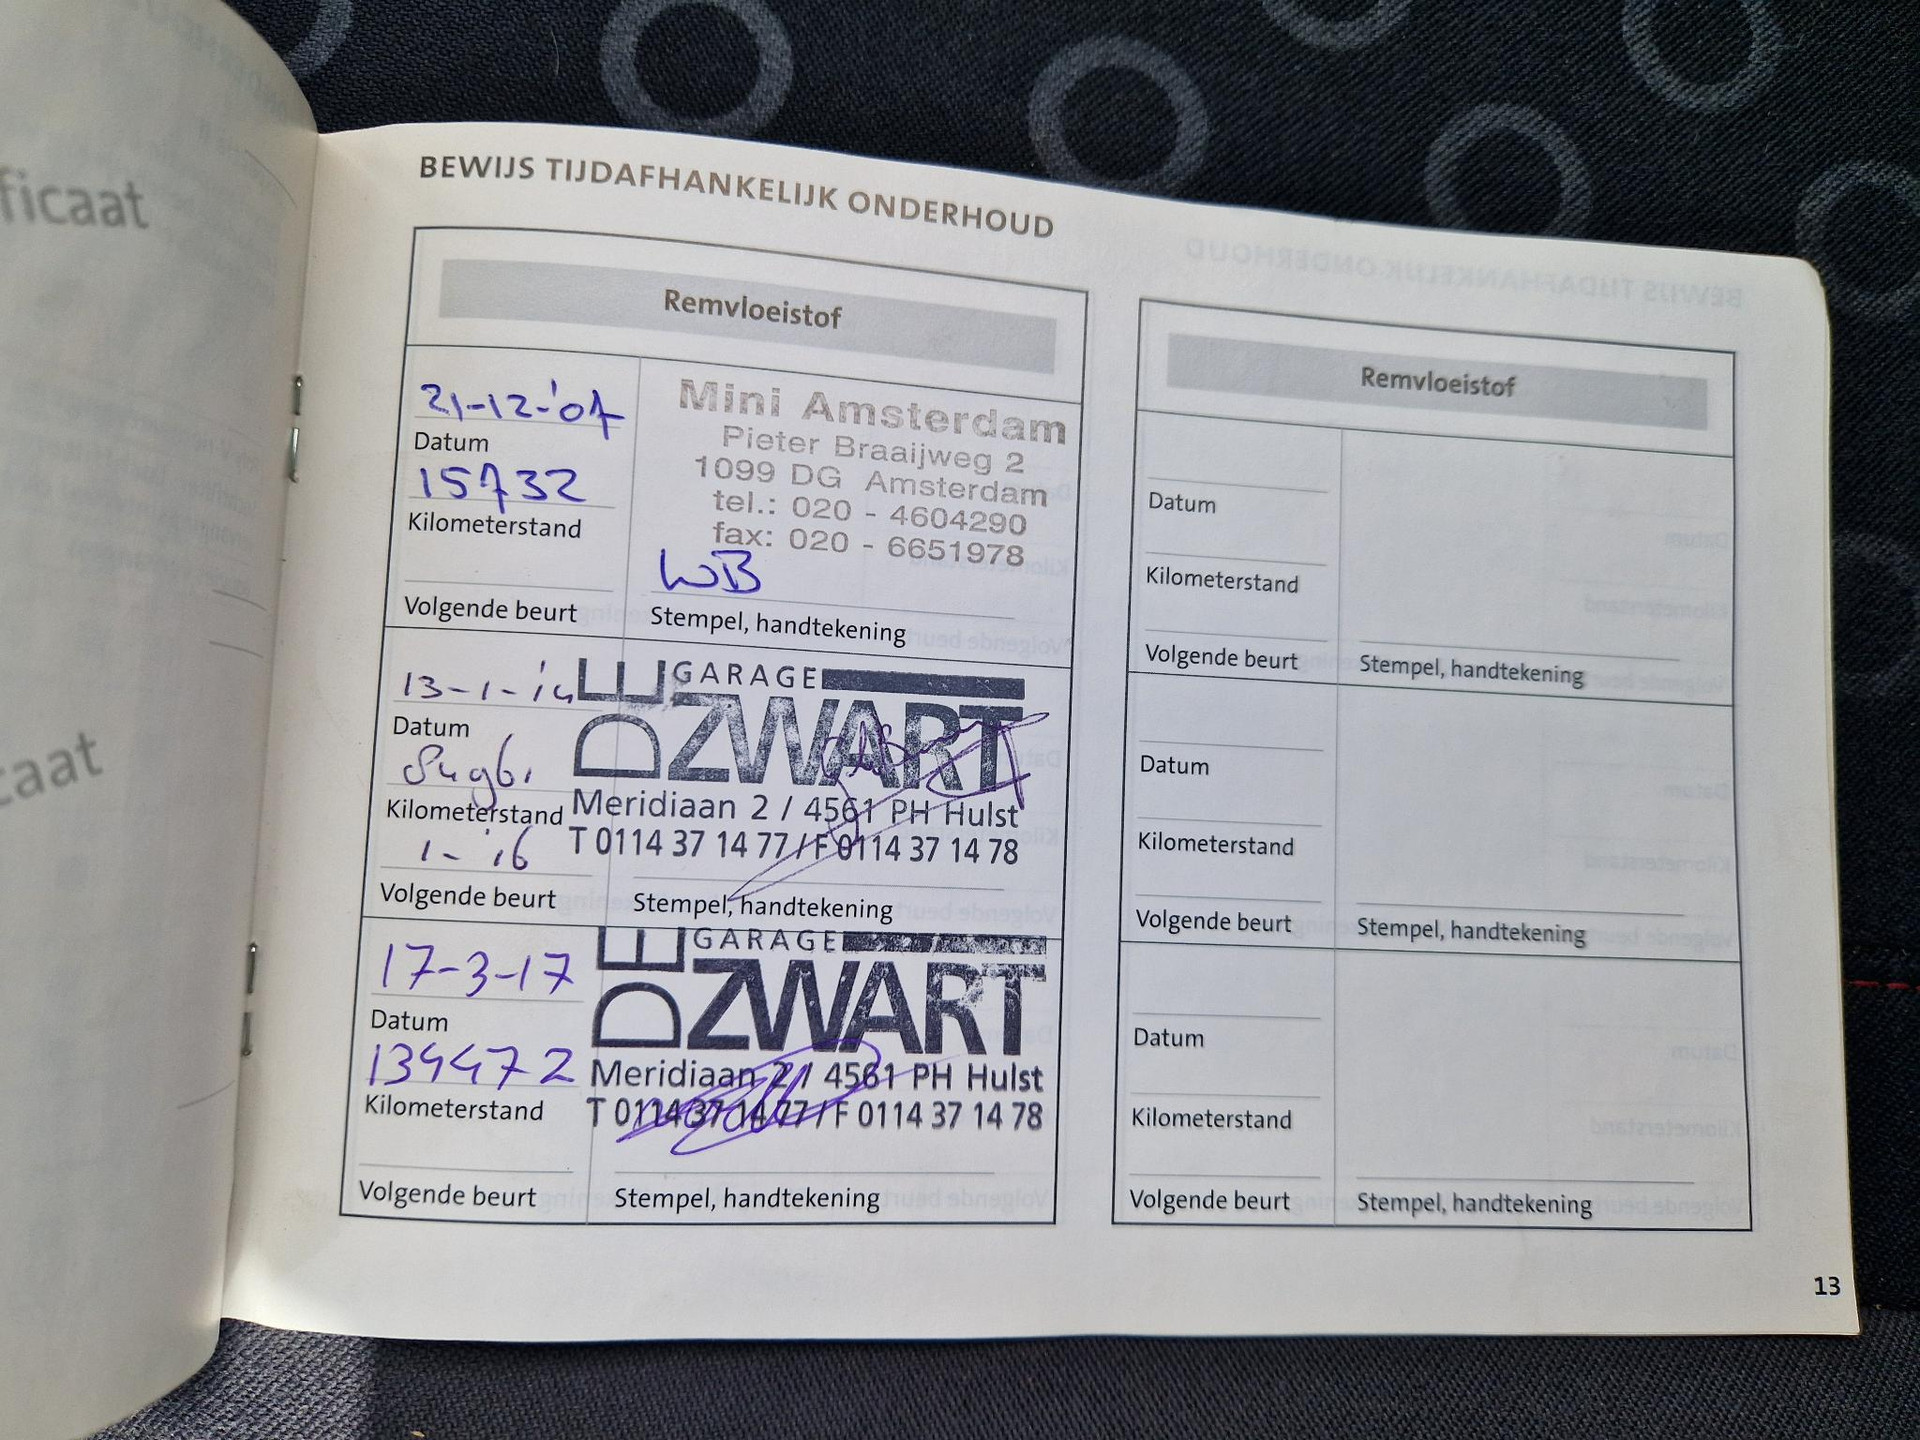 ficaat
caat
BEWIJS TIJDAFHANKELIJK ONDERHOUD
Remvloeistof
21-12-'07
Datum
15732
Kilometerstand
Volgende beurt
Mini Amsterdam
Pieter Braaijweg 2
1099 DG Amsterdam
tel.: 020 - 4604290
fax: 020 - 6651978
WB
Stempel, handtekening
13-1-'14
Datum
Kilometerstand
1-'16
Volgende beurt
GARAGE
DE ZWART
Meridiaan 2 / 4561 PH Hulst
T 0114 37 14 77 / F 0114 37 14 78
Stempel, handtekening
17-3-17
Datum
139472
Kilometerstand
Volgende beurt
GARAGE
DE ZWART
Meridiaan 2 / 4561 PH Hulst
T 0114 37 14 77 / F 0114 37 14 78
Stempel, handtekening
Remvloeistof
Datum
Kilometerstand
Volgende beurt
Stempel, handtekening
Datum
Kilometerstand
Volgende beurt
Stempel, handtekening
Datum
Kilometerstand
Volgende beurt
Stempel, handtekening
13